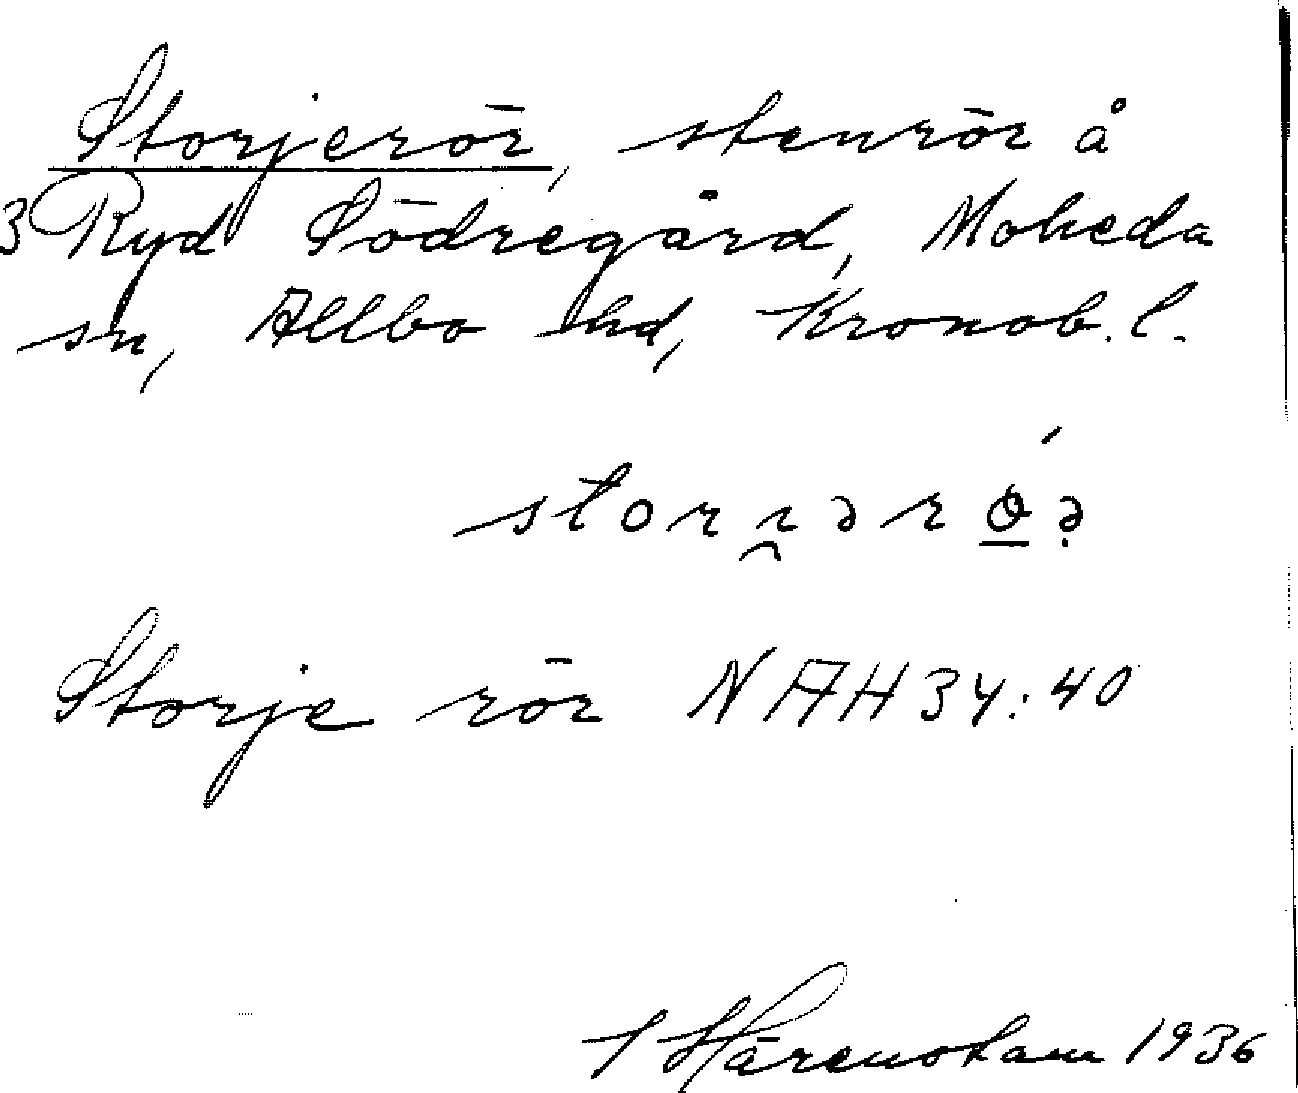 Storjerör, stenrör å
3 Ryd Södregård, Moheda
sn, Allbo hd, Kronob. l.
Storje rör NAH 34:40
Härenstam 1936